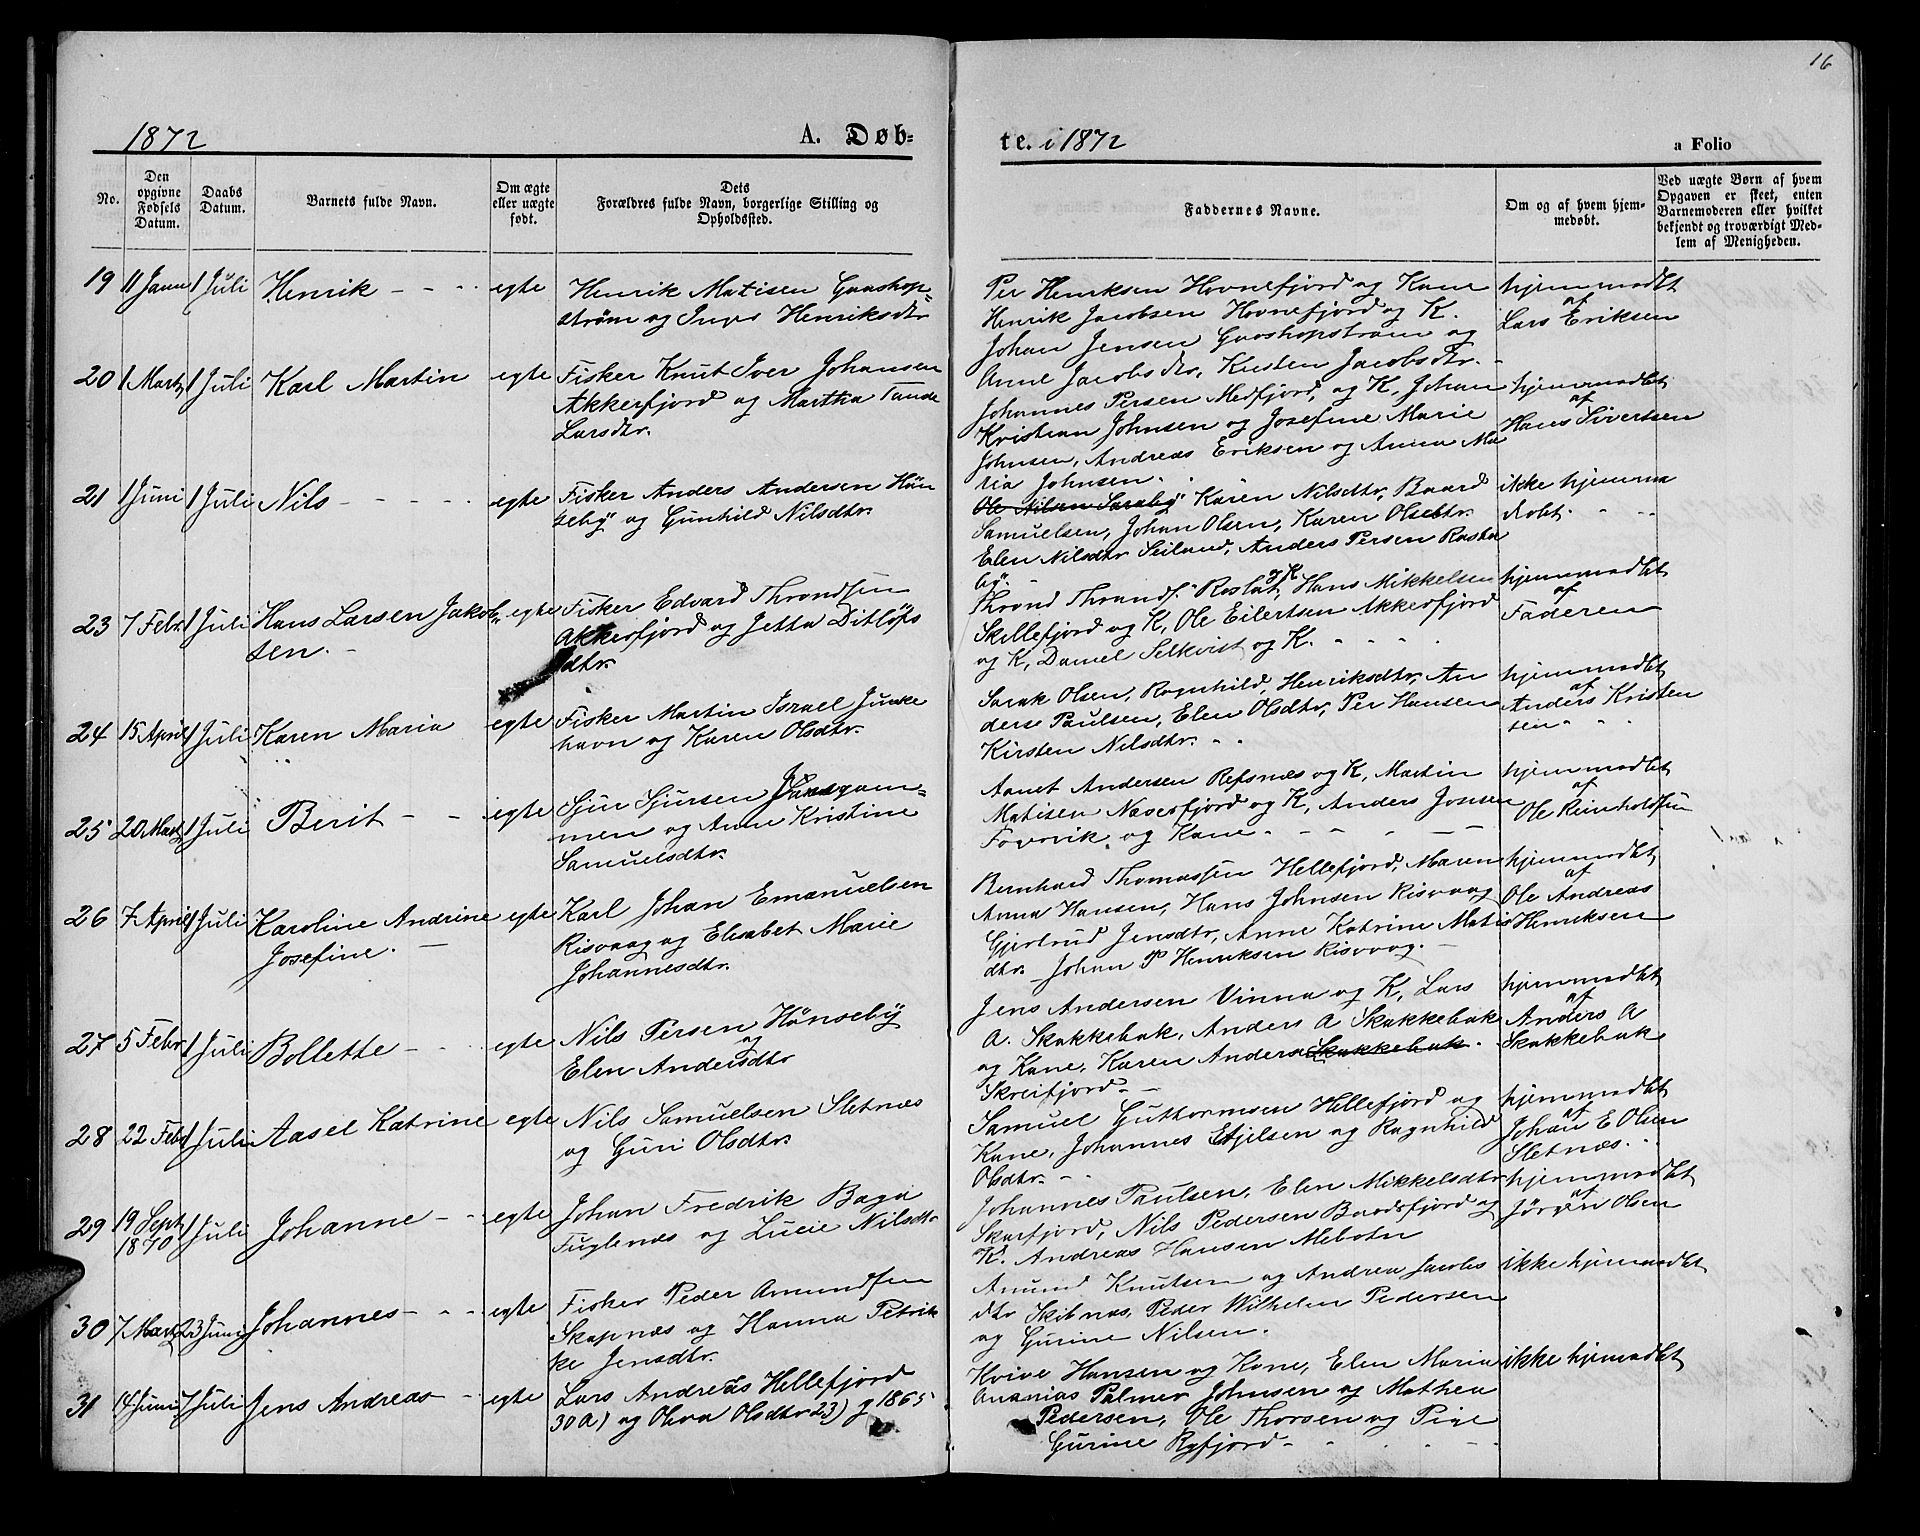 16
1872
A. Døb-
te. i 1872
a Folio
No.
Den opgivne Fødsels Datum.
Daabs Datum.
Barnets fulde Navn.
Om ægte eller uægte født.
Dets Forældres fulde Navn, borgerlige Stilling og Opholdssted.
Faddernes Navne.
Om og af hvem hjemmedøbt.
Ved uægte Børn af hvem Opgaven er skeet, enten Barnemoderen eller hvilket bekjendt og troværdigt Medlem af Menigheden.
19 11 Janu 1 Juli Henrik - - - egte
Henrik Matisen Gaashop=
strøm og Inger Henriksdtr
Per Henriksen Hovnefjord og Kone
Henrik Jacobsen Hovnefjord og K.
Johan Jensen Gaashopstrøm og
Anne Jacobsdtr, Kristen Jacobsdtr. -
hjemmedbt
af
Lars Eriksen
20 1 Marts 1 Juli Karl Martin egte
Fisker Knut Iver Johansen
Akkerfjord og Martha Tande
Larsdtr.
Johannes Persen Medfjord, og K, Johan
Kristian Johnsen og Josefine Marie
Johnsen, Andreas Eriksen og Anna Ma
ria Johnsen.
hjemmedbt
af
Hans Sivertsen
21 1 Juni 1 Juli Nils - - - - egte
Fisker Anders Andersen Høn
seby og Gunhild Nilsdtr.
Ole Nilsen Saraby Karen Nilsdtr, Baard
Samuelsen, Johan Olsen, Karen Olsdtr.
Elen Nilsdtr Seiland, Anders Persen Rasta
by. -
ikke hjemme
døbt. - -
23 7 Febr. 1 Juli Hans Larsen Jakob- egte
sen. -
Fisker Edvard Throndsen
Akkerfjord og Jetta Ditløfs
dtr.
Thrond Thronds. Rastat, og K Hans Mikkelsen
Skillefjord og K, Ole Eilertsen Akkerfjord
og K, Daniel Selkvist og K. - - -
hjemmedbt
af
Faderen
24 15 April 1 Juli Karen Maria egte
Fisker Martin Israel Junke
havn og Karen Olsdtr.
Sarak Olsen, Ragnhild, Henriksdtr, An
ders Paulsen, Elen Olsdtr, Per Hansen
Kirsten Nilsdtr. - -
hjemmedbt
af
Anders Kristen
sen - -
25 20 Marts 1 Juli Berit - - egte
Sjur Sjursen
men og Anne Kristine
Samuelsdtr.
Aanet Andersen Refsnes og K, Martin
Matisen Næverfjord og K, Anders Jonsen
og Kone. - - - - -
hjemmedbt
af
Ole Reinholdsen
26 7 April 1 Juli Karoline Andrine egte
Josefine. -
Karl Johan Emanuelsen
Risvaag og Elisabet Marie
Johannesdtr.
Bernhard Thomassen Hellefjord, Maren
Anna Hansen, Hans Johnsen Risvaag
Gjertrud Jensdtr, Anne Katrine Matis
dtr. Johan P Henriksen Risvaag. -
hjemmedbt
af
Ole Andreas
Henriksen
27 5 Febr. 1 Juli Bollette - - egte
Nils Persen Hönseby
og
Elen Andersdtr
Jens Andersen Vinna og K, Lars
A. Skakkebak, Anders A Skakkebak
og Kone, Karen Anders Skakkebak.
Skreifjord. -
hjemmedbt
af
Anders A
Skakkebak
28 22 Febr 1 Juli Aasel Katrine egte
Nils Samuelsen Sletnæs
og Guri Olsdtr.
Samuel Guttormsen Hellefjord og
Kone, Johannes Etjelsen og Ragnhild
Olsdtr. - -
hjemmedbt
af
Johan E Olsen
Sletnæs. -
29 19 Sept 1870 1 Juli Johanne - - egte
Johan Fredrik Baga
Fuglenæs og Lucie Nilsdtr
Johannes Paulsen, Elen Mikkelsdtr
Skarfjord, Nils Pedersen Baadsfjord og
K. Andreas Hansen Mebotn
hjemmedbt
af
Jørgen Olsen
30 7 Marts 23 Juni Johannes - - - egte
Fisker Peder Amundsen
Skapnæs og Hanna Petrik
ke Jensdtr.
Amund Knutsen og Andrea Jacobs
dtr Skibnæs, Peder Wilhelm Pedersen
og Gurine Nilsen.
ikke hjemmedbt
31 14 Juni 7 Juli Jens Andreas - egte
Lars Andreas Hellefjord
30A) og Oliva Olsdtr 23) g 1865
Kvive Hansen og Kone, Elen Maria
Ananias Palmer Johnsen og Mathea
Pedersen, Ole Thorsen og Pige
Gurine Ryfjord - - - -
ikke hjemmedbt